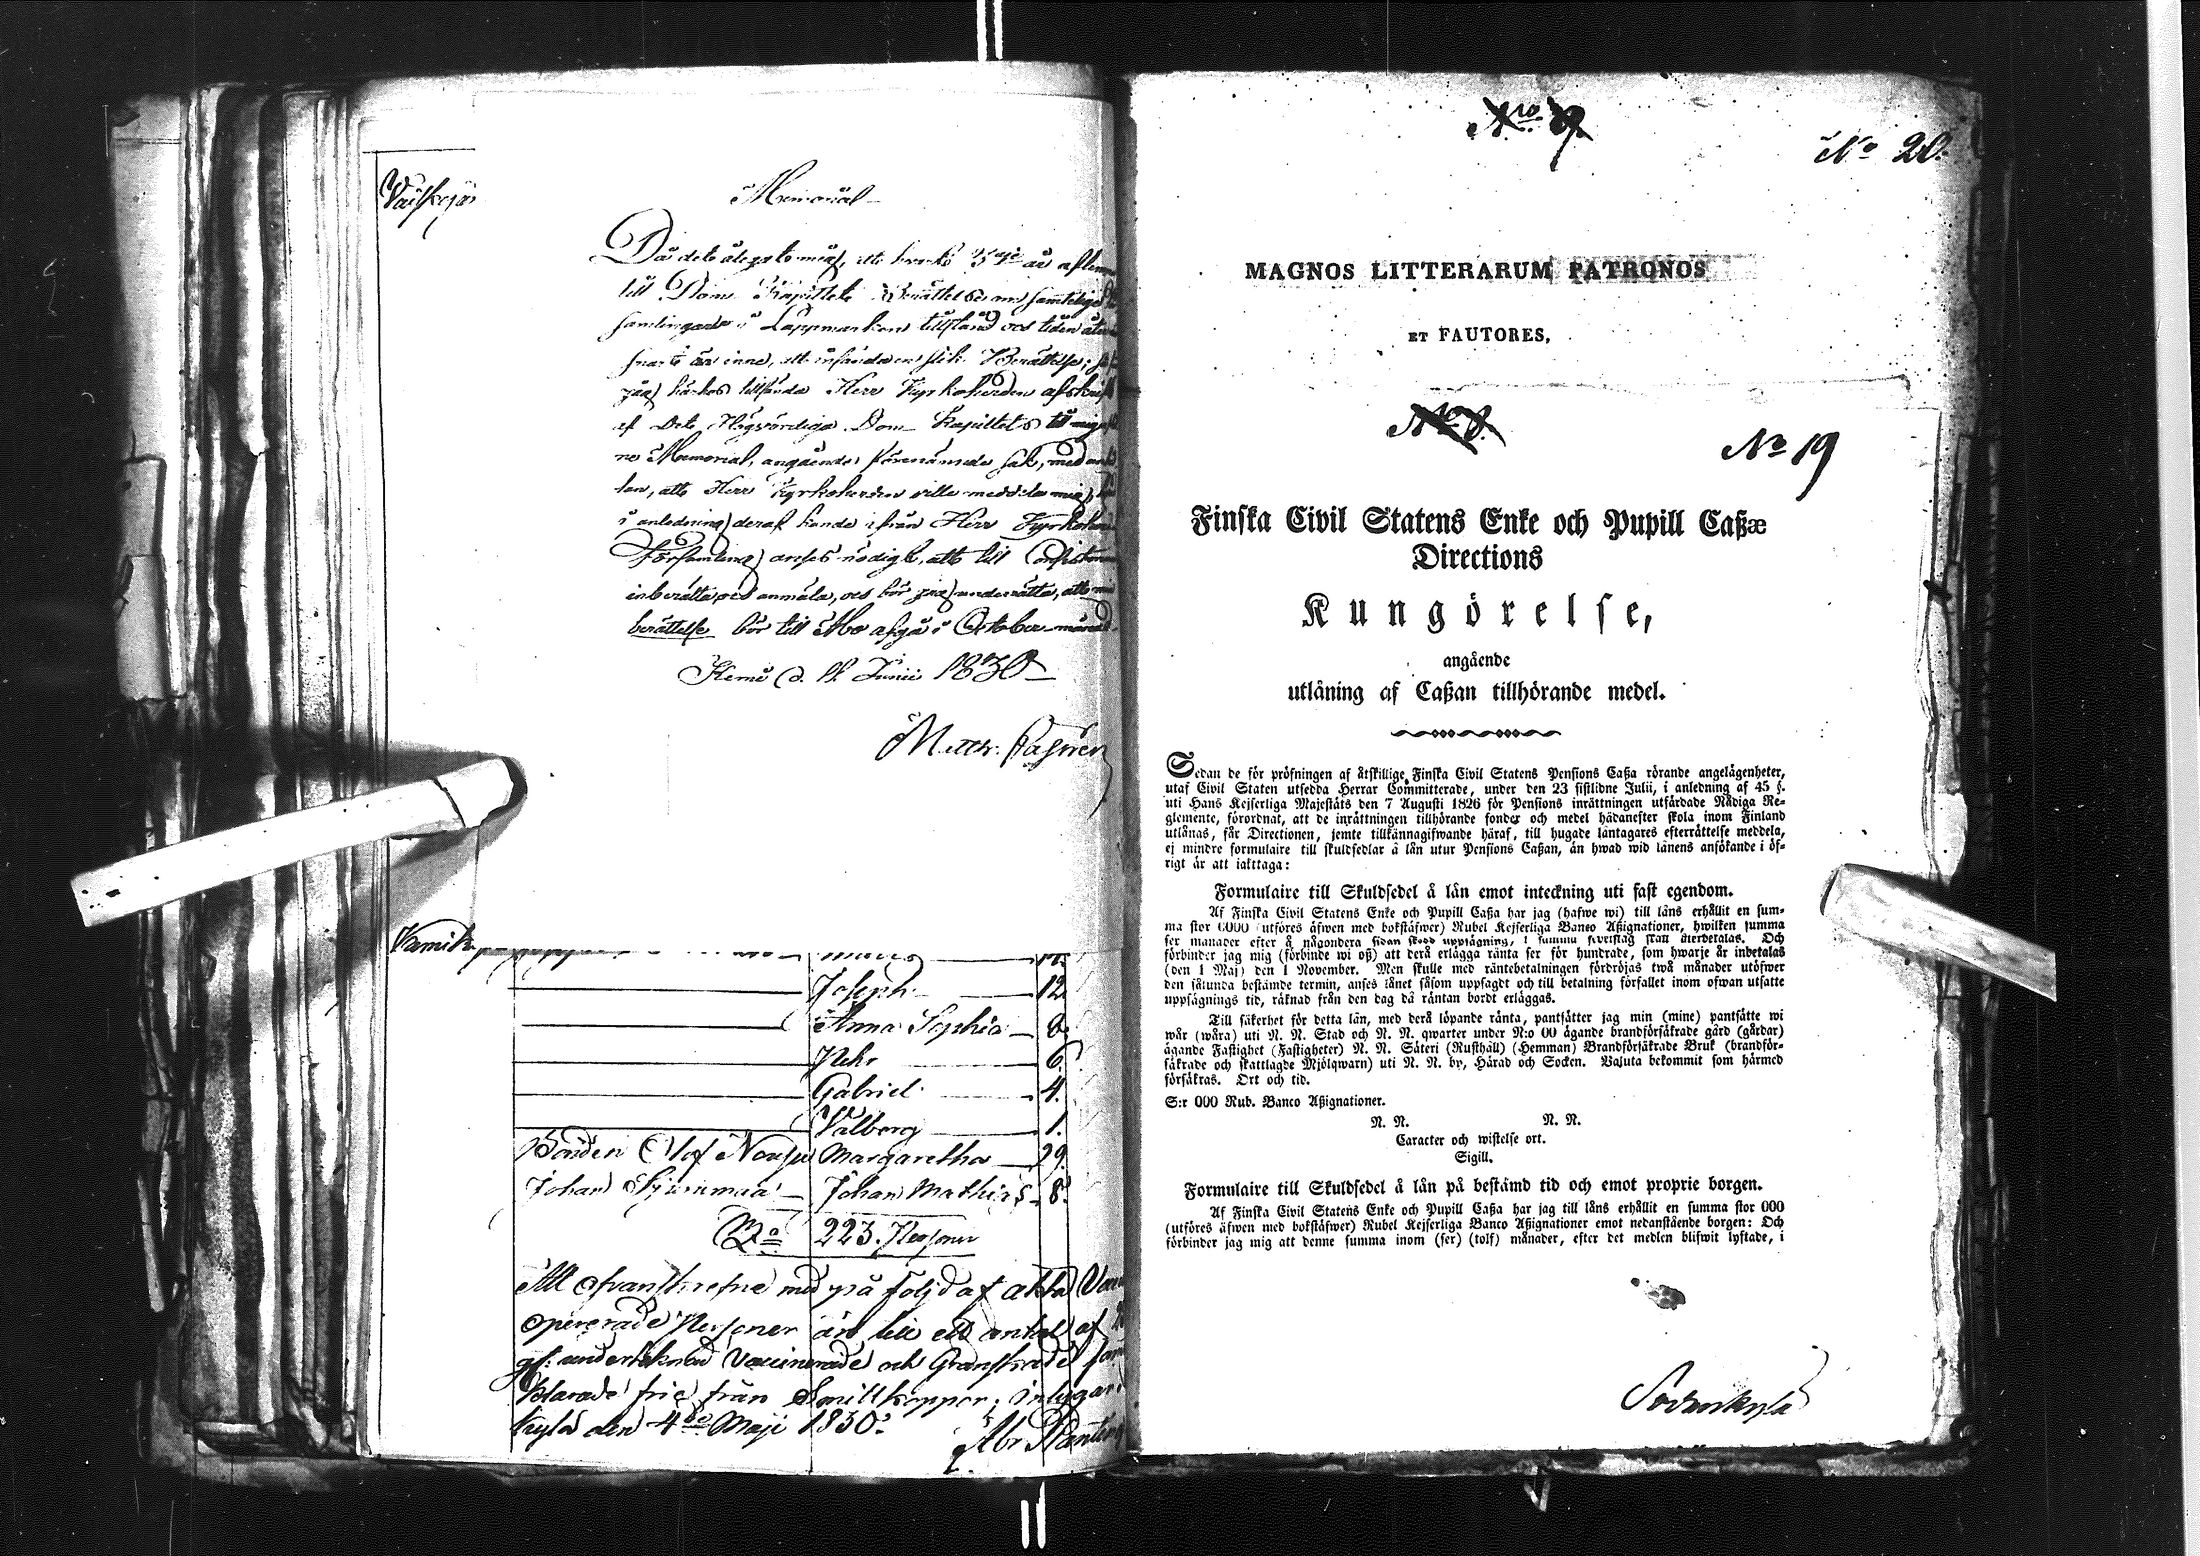 Memorial
Då det åligger mig, att hvart 3dje år aflemna
till Dom Kapitlet Berättelse om samtelige
samlingars i Lappmarken tillstånd och tiden åter
snart är inne, att insända en slik Berättelse; så
får jag härhos tillsända Herr Kyrkoherden afskrift
af Det Högvördiga Dom Kapitlets till mig
ne Memorial, angående förenämnde sak, med
lan, att Herr Kyrkoherden ville meddela mig,
i anledning deraf kunde ifrån Herr Kyrkoher
Församling anses nödigt, att till Consistorium
inberätta och anmäla, och bör jag underrätta, att min
berättelse bör till Åbo afgå i October månad.
Kemi d. Junii 1830
Matth. Castrén
Joseph 12
Anna Sophia 8
Pehr 6.
Gabriel 4.
Valborg 1.
Bonden Olof Margaretha 29.
Johan Johan Mathias 8.
223. Personer
All ofvanskrefne med på följd af äkta Vac
opererade Personer är till ett antal af
af undertecknad Vaccinerade och Granskade samt
klarade frie från Smittkoppor, intygar
Kylä den 4de Maji 1830.
Abr Planting
No 20.
MAGNOS LITTERARUM PATRONOS
ET FAUTORES,
No 19
Finska Civil Statens Enke och Pupill Caßæ
Directions
Kungörelse,
angående
utlåning af Caßan tillhörande medel.
Sedan de för pröfningen af åtskillige Finska Civil Statens Pensions Caßa rörande angelägenheter,
utaf Civil Staten utsedda Herrar Committerade, under den 23 sistlidne Julii, i anledning af 45 §.
uti Hans Kejserliga Majestäts den 7 Augusti 1826 för Pensions inrättningen utfärdade Nådiga Re-
glemente, förordnat, att de inrättningen tillhörande fonder och medel hädanefter skola inom Finland
utlånas, får Directionen, jemte tillkännagifwande häraf, till hugade låntagares efterrättelse meddela,
ej mindre formulaire till skuldsedlar å lån utur Pensions Caßan, än hwad wid lånens ansökande i öf-
rigt är att iakttaga:
Formulaire till Skuldsedel å lån emot inteckning uti fast egendom.
Af Finska Civil Statens Enke och Pupill Caßa har jag (hafwe wi) till låns erhållit en sum-
ma stor 0000 (utföres äfwen med bokstäfwer) Rubel Kejserliga Banco Aßignationer, hwilken summa
sex månader efter å någondera sidan skedd uppsägning, i summa skall återbetalas. Och
förbinder jag mig (förbinde wi oß) att derå erlägga ränta sex för hundrade, som hwarje år inbetalas
(den 1 Maj) den 1 November. Men skulle med räntebetalningen fördröjas twå månader utöfwer
den sålunda bestämde termin, anses lånet såsom uppsagdt och till betalning förfallet inom ofwan utsatte
uppsägnings tid, räknad från den dag då räntan bordt erläggas.
Till säkerhet för detta lån, med derå löpande ränta, pantsätter jag min (mine) pantsätte wi
wår (wåra) uti N. N. Stad och N. N. qwarter under N:o 00 ägande brandförsäkrade gård (gårdar)
ägande Fastighet (Fastigheter) N. N. Säteri (Rusthåll) (Hemman) Brandförsäkrade Bruk (brandför-
säkrade och skattlagde Mjölqwarn) uti N. N. by, Härad och Socken. Valuta bekommit som härmed
försäkras. Ort och tid.
S:r 000 Rub. Banco Aßignationer.
N. N. N. N.
Caracter och wistelse ort.
Sigill.
Formulaire till Skuldsedel å lån på bestämd tid och emot proprie borgen.
Af Finska Civil Statens Enke och Pupill Caßa har jag till låns erhållit en summa stor 000
(utföres äfwen med bokstäfwer) Rubel Kejserliga Banco Aßignationer emot nedanstående borgen: Och
förbinder jag mig att denne summa inom (sex) (tolf) månader, efter det medlen blifwit lyftade, i
Sodankylä